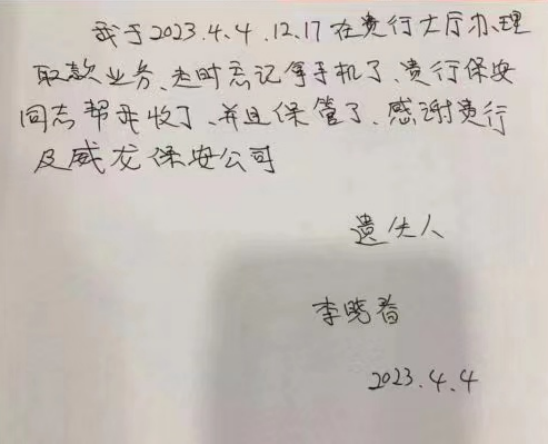 我于2023.4.4.12.17在贵行大厅办理
取款业务、走时忘记拿手机了、贵行保安
同志帮我收了、并且保管了、感谢贵行
及威龙保安公司
遗失人
李晓春
2023.4.4